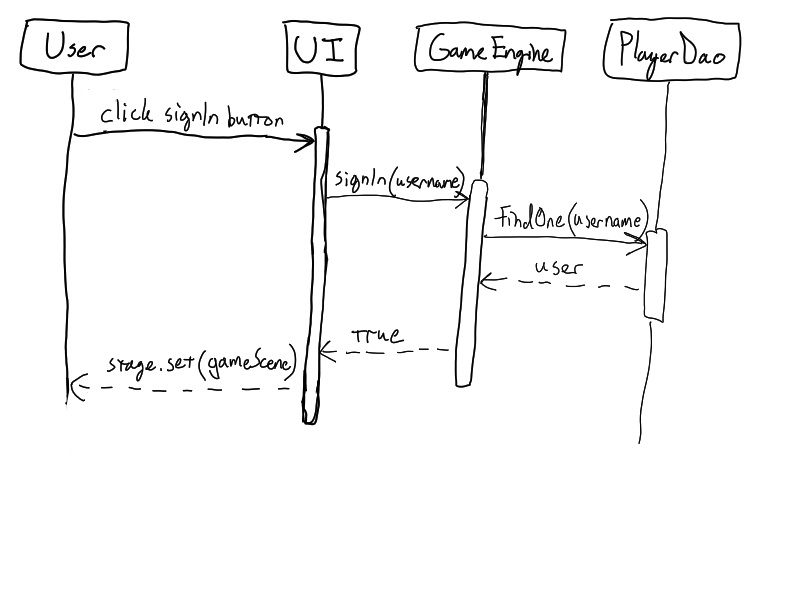 User
UI
GameEngine
PlayerDao
click signIn button
signIn(username)
findOne(username)
user
True
stage.set(gameScene)